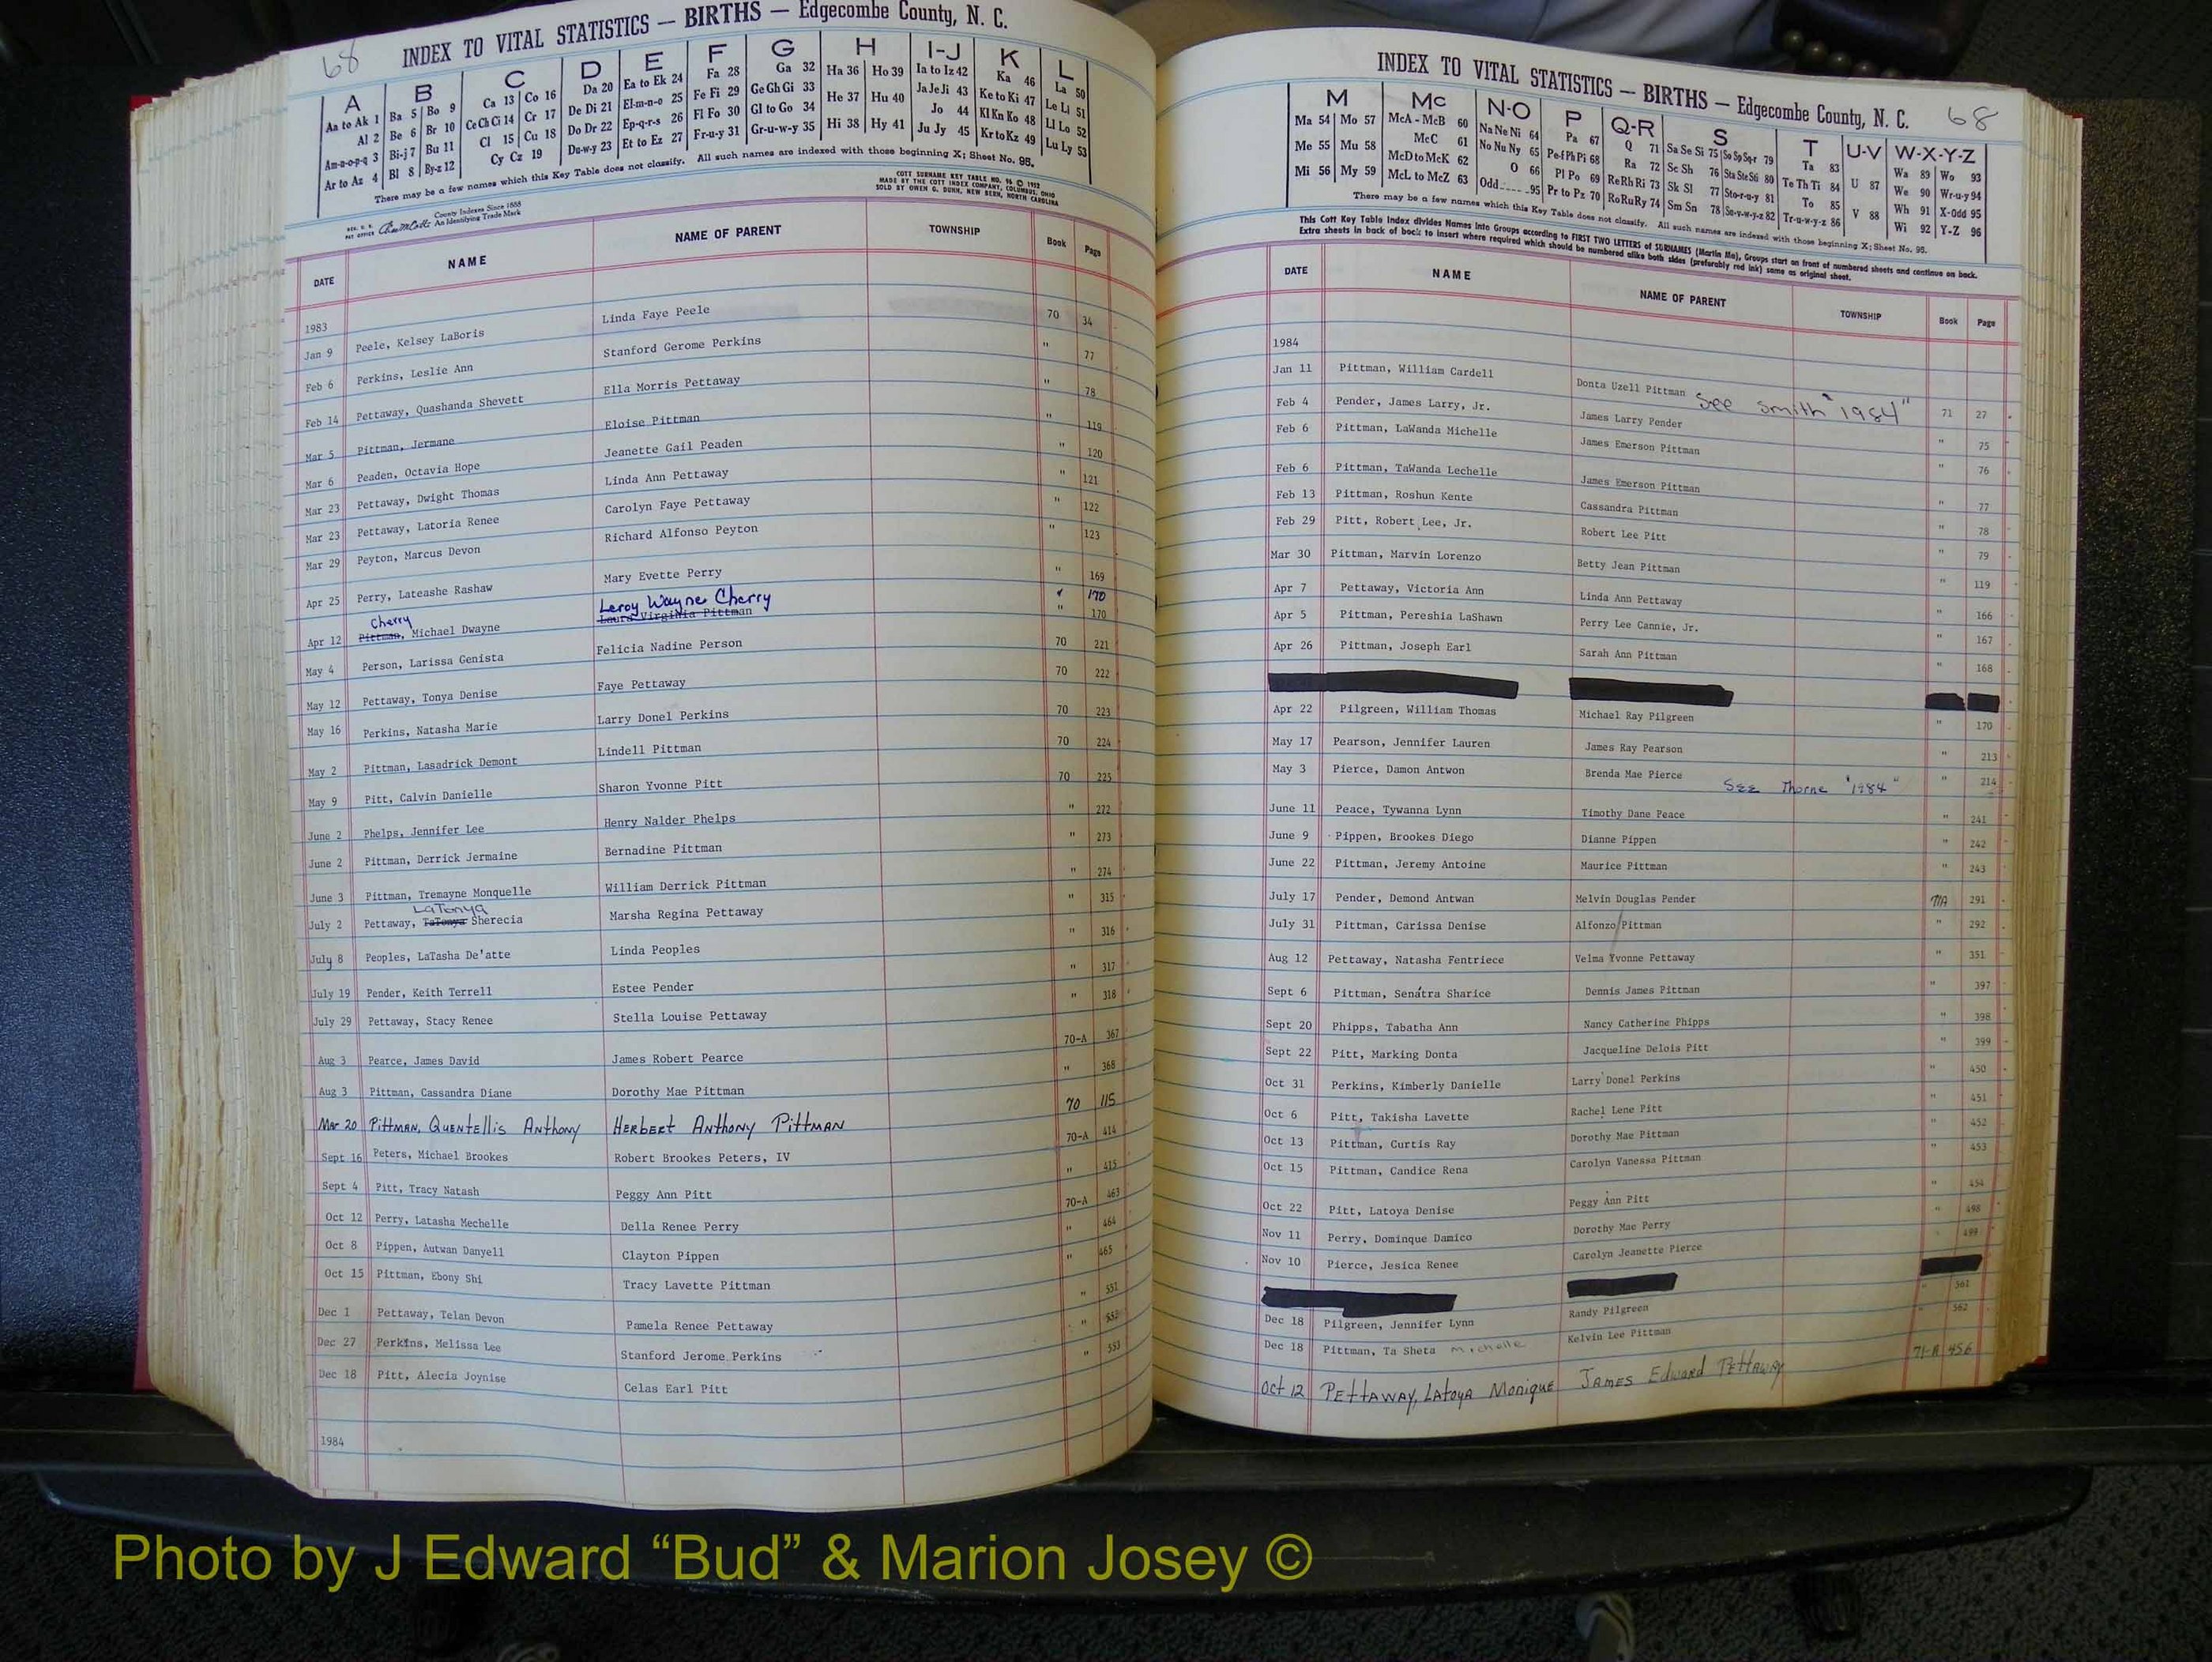 68
INDEX TO VITAL STATISTICS — BIRTHS — Edgecombe County, N. C.
A B C D E F G H I-J K L
Aa to Ak 1 Ba 5 Bo 9 Ca 13 Co 16 Da 20 Ea to Ek 24 Fa 28 Ga 32 Ha 36 Ho 39 Ia to Iz 42 Ka 46 La 50
Al 2 Be 6 Br 10 Ce Ch Ci 14 Cr 17 De Di 21 El-m-n-o 25 Fe Fi 29 Ge Gh Gi 33 He 37 Hu 40 Ja Je Ji 43 Ke to Ki 47 Le Li 51
Am-n-o-p-q 3 Bi-j 7 Bu 11 Cl 15 Cu 18 Do Dr 22 Ep-q-r-s 26 Fl Fo 30 Gl to Go 34 Hi 38 Hy 41 Jo 44 Kl Kn Ko 48 Ll Lo 52
Ar to Az 4 Bl 8 By-z 12 Cy Cz 19 Du-w-y 23 Et to Ez 27 Fr-u-y 31 Gr-u-w-y 35 Ju Jy 45 Kr to Kz 49 Lu Ly 53
There may be a few names which this Key Table does not classify. All such names are indexed with those beginning X; Sheet No. 95.
County Indexes Since 1888
An Identifying Trade Mark
MADE BY THE COTT INDEX COMPANY, COLUMBUS, OHIO
SOLD BY OWEN G. DUNN, NEW BERN, NORTH CAROLINA
DATE NAME NAME OF PARENT TOWNSHIP Book Page
1983
Jan 9 Peele, Kelsey LaBoris Linda Faye Peele 70 34
Feb 6 Perkins, Leslie Ann Stanford Gerome Perkins " 77
Feb 14 Pettaway, Quashanda Shevett Ella Morris Pettaway " 78
Mar 5 Pittman, Jermane Eloise Pittman " 119
Mar 6 Peaden, Octavia Hope Jeanette Gail Peaden " 120
Mar 23 Pettaway, Dwight Thomas Linda Ann Pettaway " 121
Mar 23 Pettaway, Latoria Renee Carolyn Faye Pettaway " 122
Mar 29 Peyton, Marcus Devon Richard Alfonso Peyton " 123
Apr 25 Perry, Lateashe Rashaw Mary Evette Perry " 169
Cherry Leroy Wayne Cherry " 170
Apr 12 Pittman, Michael Dwayne Laura Virginia Pittman " 170
May 4 Person, Larissa Genista Felicia Nadine Person 70 221
May 12 Pettaway, Tonya Denise Faye Pettaway 70 222
May 16 Perkins, Natasha Marie Larry Donel Perkins 70 223
May 2 Pittman, Lasadrick Demont Lindell Pittman 70 224
May 9 Pitt, Calvin Danielle Sharon Yvonne Pitt 70 225
June 2 Phelps, Jennifer Lee Henry Nalder Phelps " 272
June 2 Pittman, Derrick Jermaine Bernadine Pittman " 273
June 3 Pittman, Tremayne Monquelle William Derrick Pittman " 274
LaTonya
July 2 Pettaway, TaTonya Sherecia Marsha Regina Pettaway " 315
July 8 Peoples, LaTasha De'atte Linda Peoples " 316
July 19 Pender, Keith Terrell Estee Pender " 317
July 29 Pettaway, Stacy Renee Stella Louise Pettaway " 318
Aug 3 Pearce, James David James Robert Pearce 70-A 367
Aug 3 Pittman, Cassandra Diane Dorothy Mae Pittman " 368
Mar 20 Pittman, Quentellis Anthony Herbert Anthony Pittman 70 115
Sept 16 Peters, Michael Brookes Robert Brookes Peters, IV 70-A 414
Sept 4 Pitt, Tracy Natash Peggy Ann Pitt " 415
Oct 12 Perry, Latasha Mechelle Della Renee Perry 70-A 463
Oct 8 Pippen, Autwan Danyell Clayton Pippen " 464
Oct 15 Pittman, Ebony Shi Tracy Lavette Pittman " 465
Dec 1 Pettaway, Telan Devon Pamela Renee Pettaway " 551
Dec 27 Perkins, Melissa Lee Stanford Jerome Perkins " 552
Dec 18 Pitt, Alecia Joynise Celas Earl Pitt " 553
1984
INDEX TO VITAL STATISTICS — BIRTHS — Edgecombe County, N. C. 68
M Mc N-O P Q-R S T U-V W-X-Y-Z
Ma 54 Mo 57 McA - McB 60 Na Ne Ni 64 Pa 67 Q 71 Sa Se Si 75 So Sp Sq-r 79 Ta 83 U 87 Wa 89 Wo 93
Me 55 Mu 58 McC 61 No Nu Ny 65 Pe-f Ph Pi 68 Ra 72 Sc Sh 76 Sta Ste Sti 80 Te Th Ti 84 V 88 We 90 Wr-u-y 94
Mi 56 My 59 McD to McK 62 O 66 Pl Po 69 Re Rh Ri 73 Sk Sl 77 Sto-r-u-y 81 To 85 Wh 91 X-Odd 95
McL to McZ 63 Odd 95 Pr to Pz 70 Ro Ru Ry 74 Sm Sn 78 Su-v-w-y-z 82 Tr-u-w-y-z 86 Wi 92 Y-Z 96
There may be a few names which this Key Table does not classify. All such names are indexed with those beginning X; Sheet No. 95.
This Cott Key Table Index divides Names into Groups according to FIRST TWO LETTERS of SURNAMES (Martin Ma), Groups start on front of numbered sheets and continue on back.
Extra sheets in back of book to insert where required which should be numbered alike both sides (preferably red ink) same as original sheet.
DATE NAME NAME OF PARENT TOWNSHIP Book Page
1984
Jan 11 Pittman, William Cardell Donta Uzell Pittman See Smith "1984" 71 27
Feb 4 Pender, James Larry, Jr. James Larry Pender " 75
Feb 6 Pittman, LaWanda Michelle James Emerson Pittman " 76
Feb 6 Pittman, TaWanda Lechelle James Emerson Pittman " 77
Feb 13 Pittman, Roshun Kente Cassandra Pittman " 78
Feb 29 Pitt, Robert Lee, Jr. Robert Lee Pitt " 79
Mar 30 Pittman, Marvin Lorenzo Betty Jean Pittman " 119
Apr 7 Pettaway, Victoria Ann Linda Ann Pettaway " 166
Apr 5 Pittman, Pereshia LaShawn Perry Lee Cannie, Jr. " 167
Apr 26 Pittman, Joseph Earl Sarah Ann Pittman " 168
Apr 22 Pilgreen, William Thomas Michael Ray Pilgreen " 170
May 17 Pearson, Jennifer Lauren James Ray Pearson " 213
May 3 Pierce, Damon Antwon Brenda Mae Pierce See Thorne "1984" " 214
June 11 Peace, Tywanna Lynn Timothy Dane Peace " 241
June 9 Pippen, Brookes Diego Dianne Pippen " 242
June 22 Pittman, Jeremy Antoine Maurice Pittman " 243
July 17 Pender, Demond Antwan Melvin Douglas Pender 71A 291
July 31 Pittman, Carissa Denise Alfonzo Pittman " 292
Aug 12 Pettaway, Natasha Fentriece Velma Yvonne Pettaway " 351
Sept 6 Pittman, Senatra Sharice Dennis James Pittman " 397
Sept 20 Phipps, Tabatha Ann Nancy Catherine Phipps " 398
Sept 22 Pitt, Marking Donta Jacqueline Delois Pitt " 399
Oct 31 Perkins, Kimberly Danielle Larry Donel Perkins " 450
Oct 6 Pitt, Takisha Lavette Rachel Lene Pitt " 451
Oct 13 Pittman, Curtis Ray Dorothy Mae Pittman " 452
Oct 15 Pittman, Candice Rena Carolyn Vanessa Pittman " 453
Oct 22 Pitt, Latoya Denise Peggy Ann Pitt " 454
Nov 11 Perry, Dominque Damico Dorothy Mae Perry " 498
Nov 10 Pierce, Jesica Renee Carolyn Jeanette Pierce " 499
Dec 18 Pilgreen, Jennifer Lynn Randy Pilgreen " 561
Dec 18 Pittman, Ta Sheta Michelle Kelvin Lee Pittman " 562
Oct 12 Pettaway, Latoya Monique James Edward Pettaway 71-A 456
Photo by J Edward “Bud” & Marion Josey ©